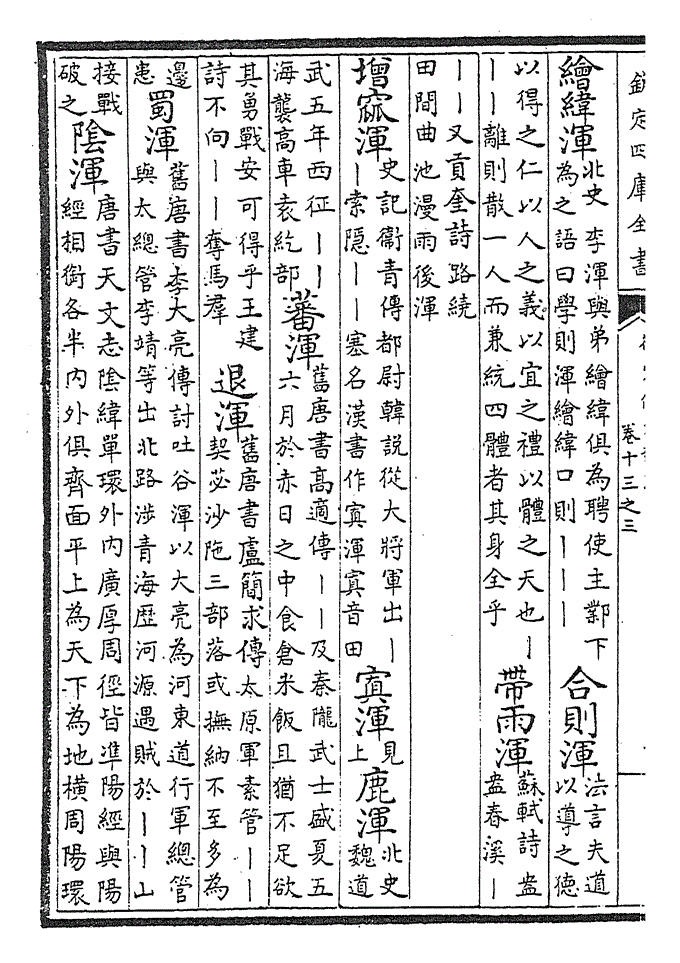 欽定四庫全書
卷十三之三
繪緯渾
北史李渾與弟繪緯俱為聘使主鄴下
為之語曰學則渾繪緯口則｜｜｜
合則渾
法言夫道
以導之德
以得之仁以人之義以宜之禮以體之天也｜
｜｜離則散一人而兼統四體者其身全乎
帶雨渾
蘇軾詩盎
盎春溪｜
｜｜又貢奎詩路繞
田間曲池漫雨後渾
增窳渾
史記衞青傳都尉韓説從大將軍出｜
｜索隱｜｜塞名漢書作窴渾窴音田
窴渾
見
上
鹿渾
北史
魏道
武五年西征｜｜｜
海襲髙車袁紇部
蕃渾
舊唐書髙適傳｜｜及秦隴武士盛夏五
六月於赤日之中食倉米飯且猶不足欲
其勇戰安可得乎王建
詩不向｜｜奪馬羣
退渾
舊唐書盧簡求傳太原軍素管｜｜
契苾沙陁三部落或撫納不至多為
邊
患
蜀渾
舊唐書李大亮傳討吐谷渾以大亮為河東道行軍總管
與太總管李靖等出北路涉青海歴河源遇賊於｜｜山
接戰
破之
陰渾
唐書天文志陰緯單環外内廣厚周徑皆凖陽經與陽
經相銜各半内外俱齊面平上為天下為地横周陽環